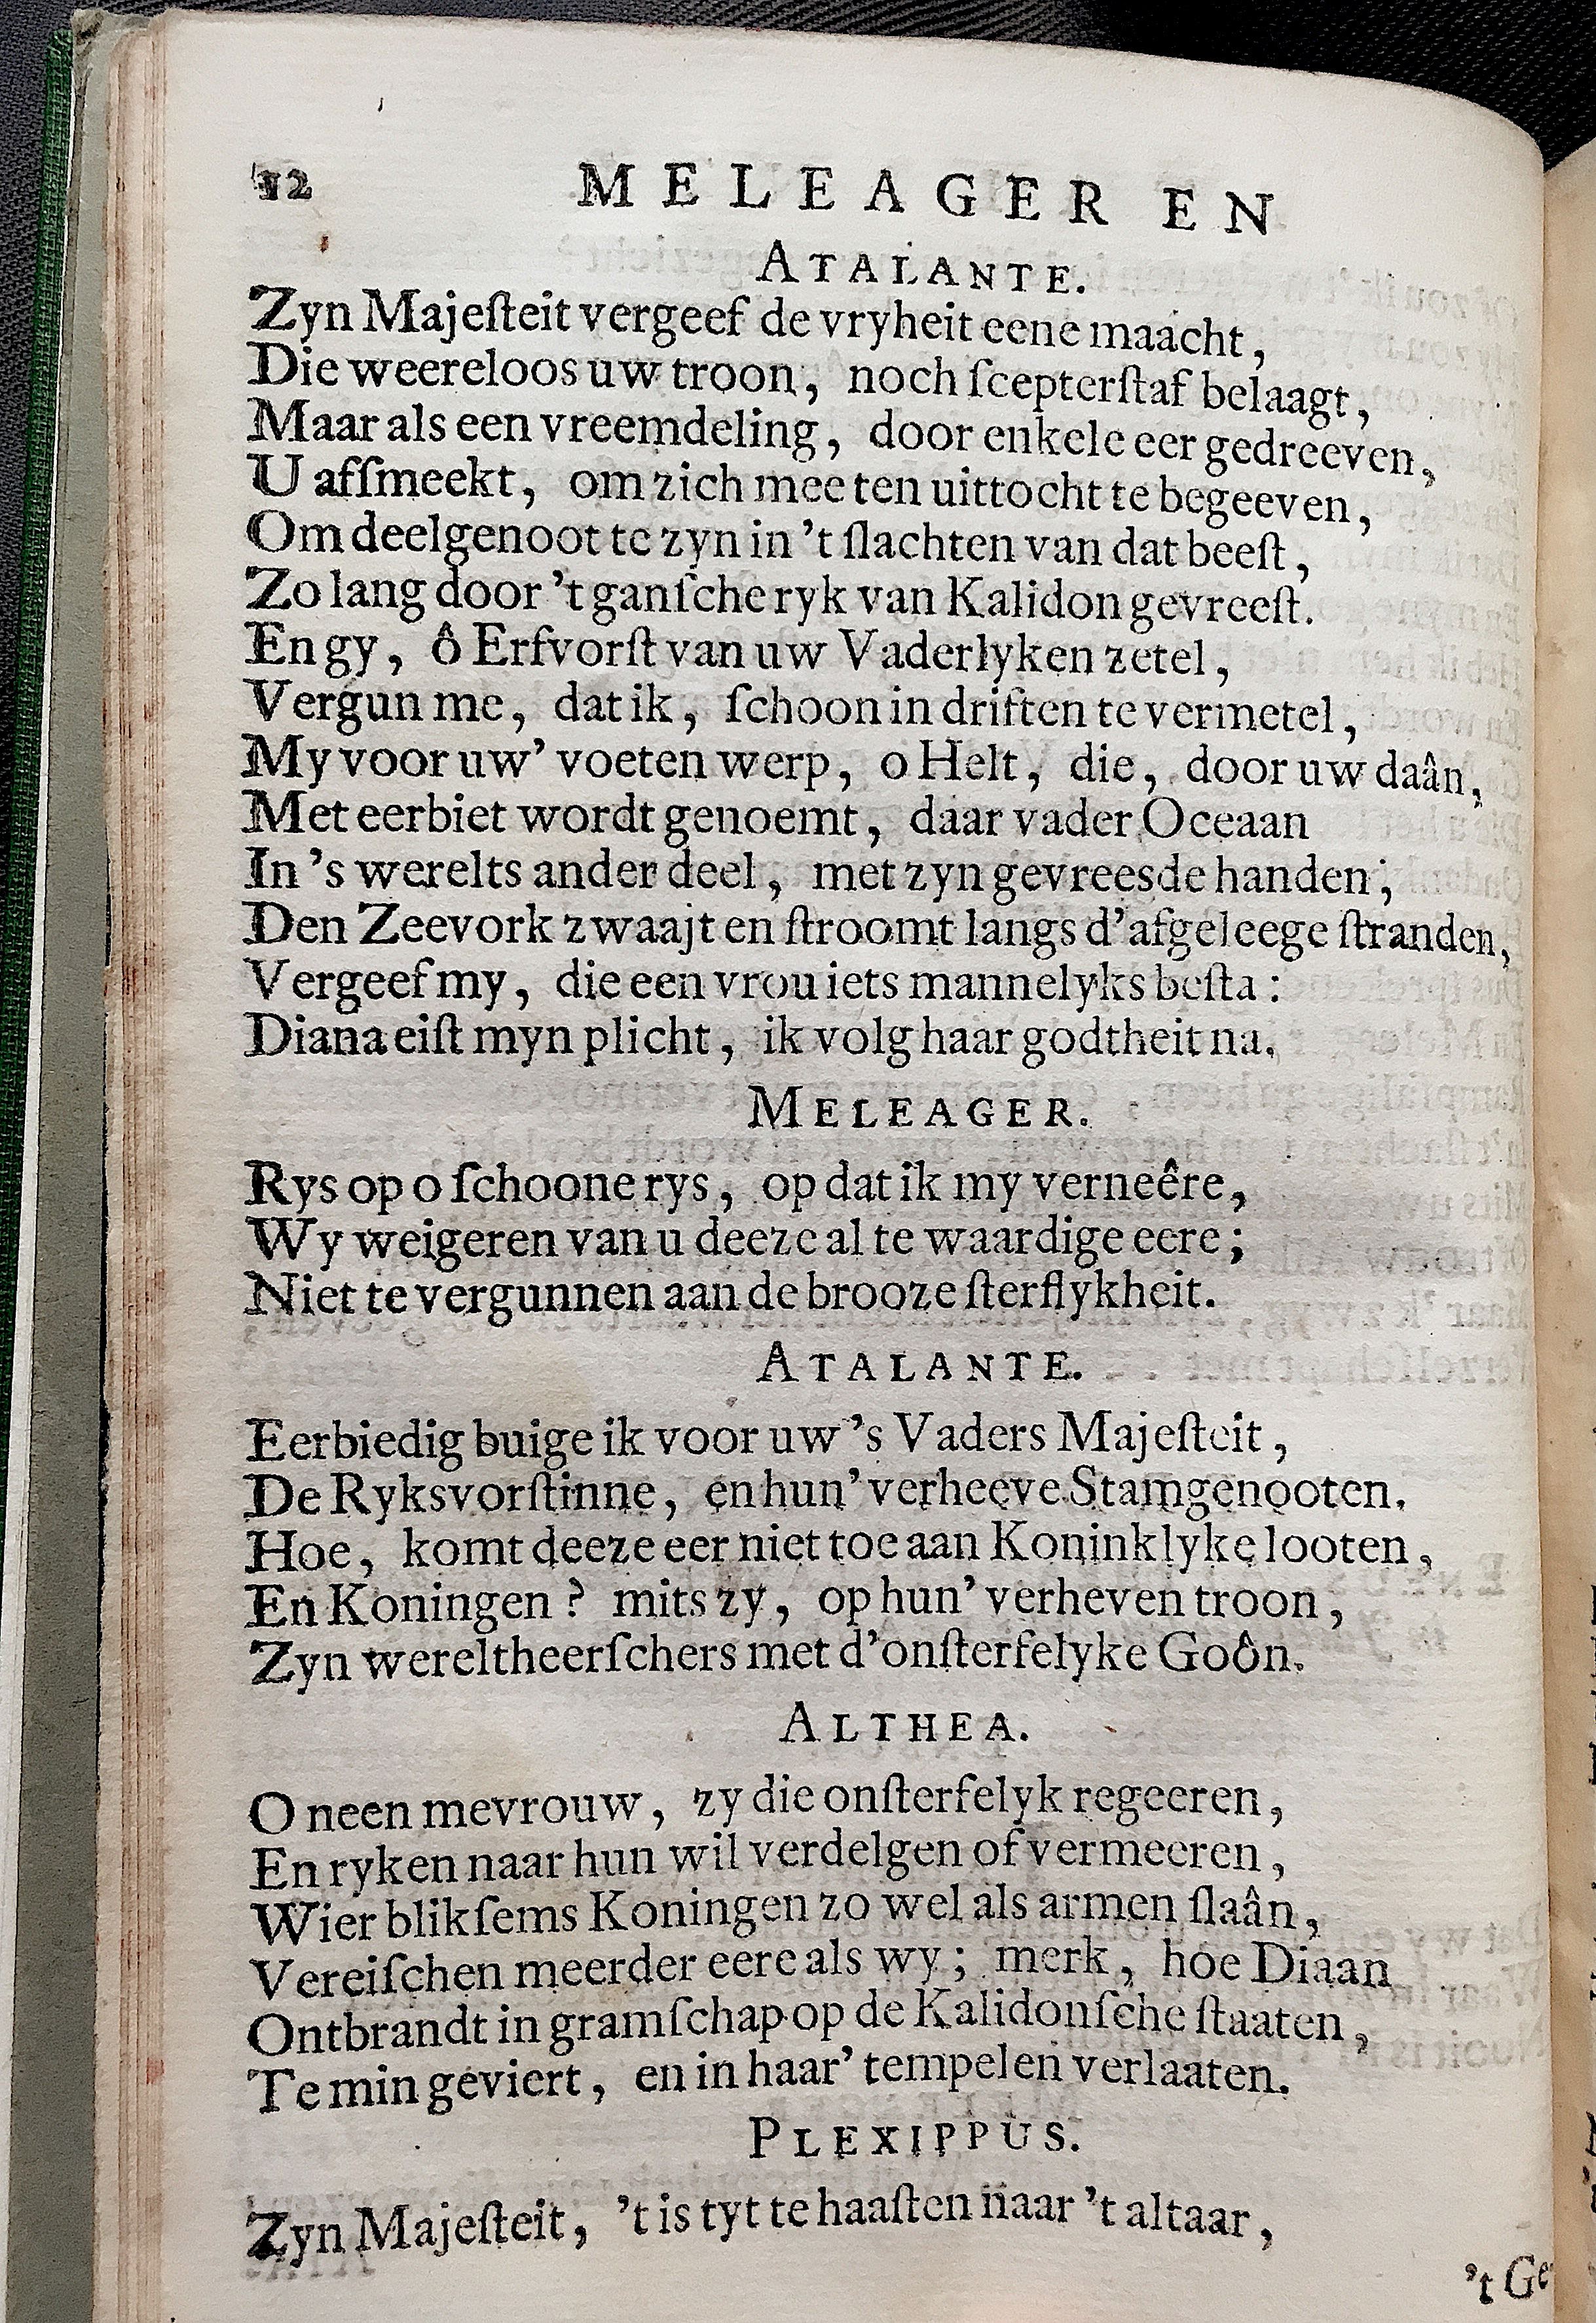 12 MELEAGER EN
ATALANTE.
Zyn Majeſteit vergeef de vryheit eene maacht,
Die weereloos uw troon, noch ſcepterſtaf belaagt,
Maar als een vreemdeling, door enkele eer gedreeven,
U afſmeekt, om zich mee ten uittocht te begeeven,
Om deelgenoot te zyn in 't ſlachten van dat beeſt,
Zo lang door 't ganſche ryk van Kalidon gevreeſt.
En gy, ô Erfvorſt van uw Vaderlyken zetel,
Vergun me, dat ik, ſchoon in driften te vermetel,
My voor uw' voeten werp, o Helt, die, door uw daân,
Met eerbiet wordt genoemt, daar vader Oceaan
In 's werelts ander deel, met zyn gevreesde handen;
Den Zeevork zwaajt en ſtroomt langs d'afgeleege ſtranden,
Vergeef my, die een vrou iets mannelyks beſta:
Diana eiſt myn plicht, ik volg haar godtheit na.
MELEAGER.
Rys op o ſchoone rys, op dat ik my verneêre,
Wy weigeren van u deeze al te waardige eere;
Niet te vergunnen aan de brooze ſterflykheit.
ATALANTE.
Eerbiedig buige ik voor uw 's Vaders Majeſteit,
De Ryksvorſtinne, en hun' verheeve Stamgenooten.
Hoe, komt deeze eer niet toe aan Koninklyke looten,
En Koningen? mits zy, op hun' verheven troon,
Zyn wereltheerſchers met d'onſterfelyke Goôn.
ALTHEA.
O neen mevrouw, zy die onſterfelyk regeeren,
En ryken naar hun wil verdelgen of vermeeren,
Wier blikſems Koningen zo wel als armen ſlaân,
Vereiſchen meerder eere als wy; merk, hoe Diaan
Ontbrandt in gramſchap op de Kalidonſche ſtaaten,
Te min geviert, en in haar' tempelen verlaaten.
PLEXIPPUS.
Zyn Majeſteit, 't is tyt te haaſten naar 't altaar,
't Ge